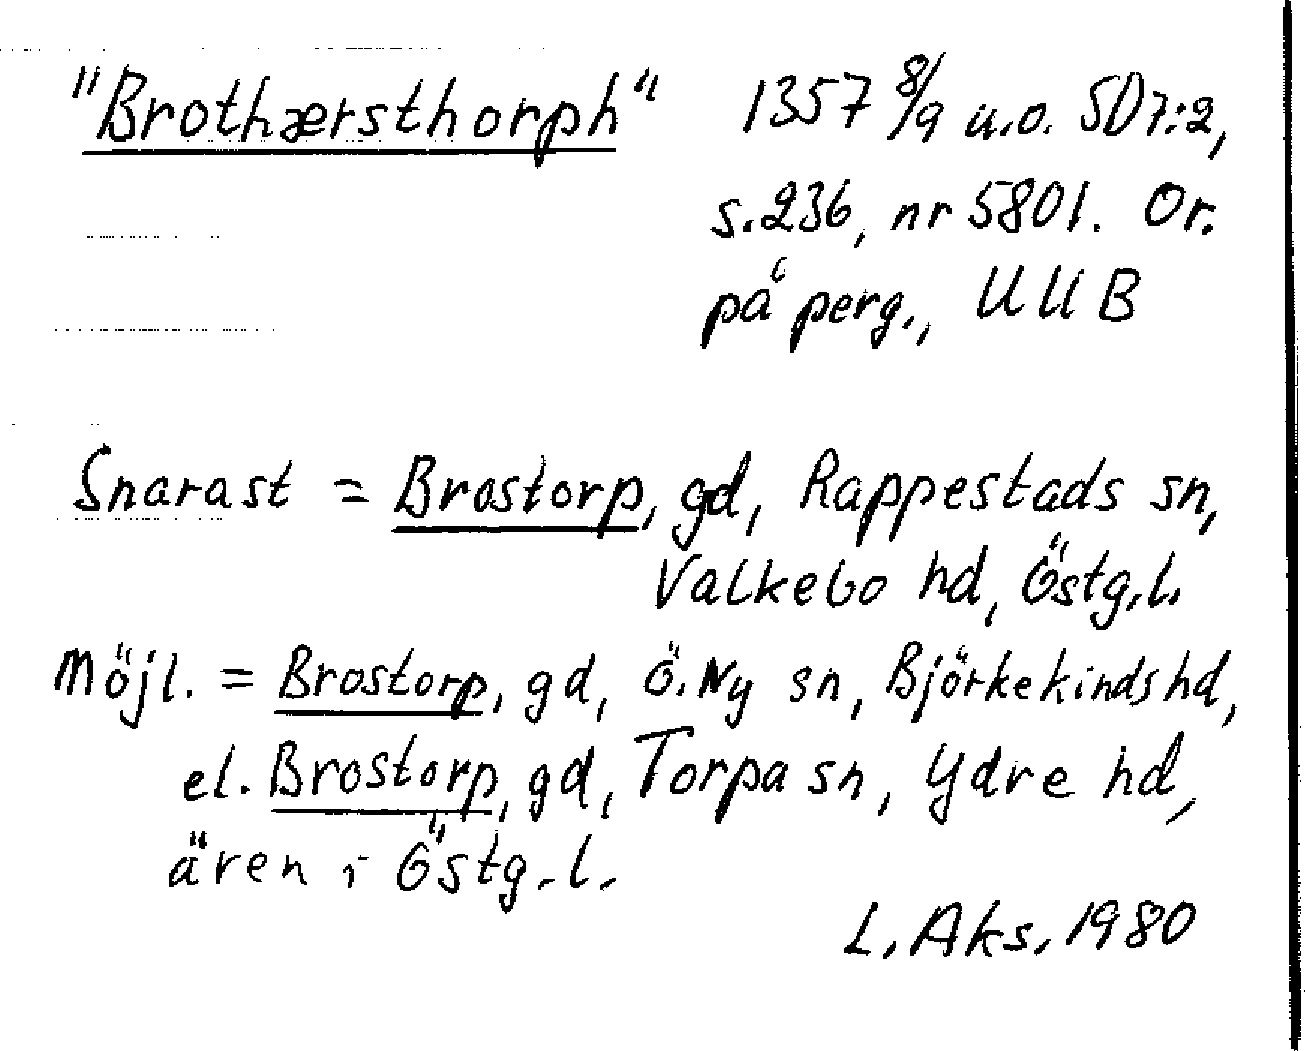 "Brothærsthorph" 1357 8/9 u.o. SD 7:2,
s.236, nr 5801. Or.
på perg., UUB
Snarast = Brostorp, gd, Rappestads sn,
Valkebo hd, Östg.l.
Möjl. = Brostorp, gd, Ö. Ny sn, Björkekinds hd,
el. Brostorp, gd, Torpa sn, Ydre hd,
även i Östg.l.
L. Aks. 1980